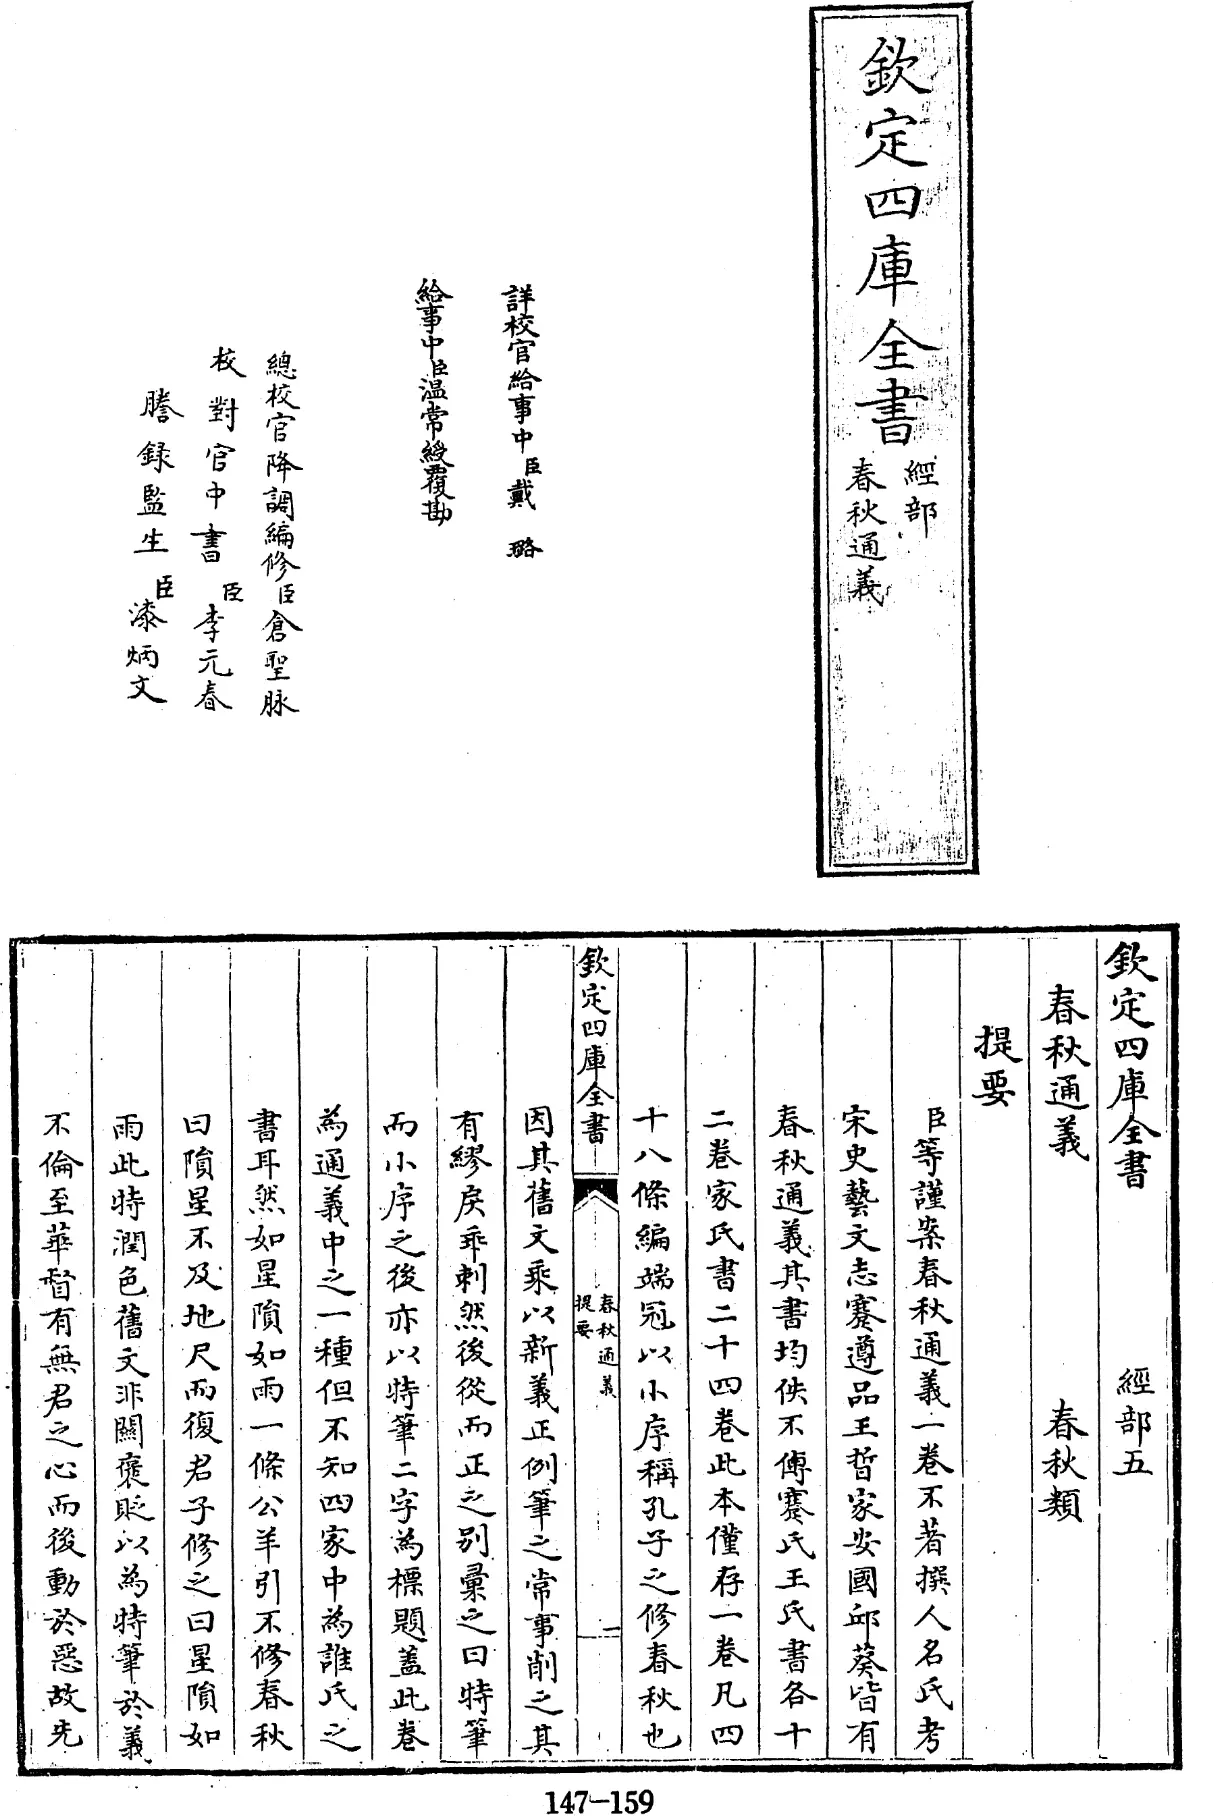 欽定四庫全書
經部
春秋通義
詳校官給事中臣戴璐
給事中臣温常綬覆勘
總校官降調編修臣倉聖脉
校對官中書臣李元春
謄録監生臣漆炳文
欽定四庫全書 經部五
春秋通義 春秋類
提要
臣等謹案春秋通義一卷不著撰人名氏考
宋史藝文志蹇遵品王晳家安國邱葵皆有
春秋通義其書均佚不傳蹇氏王氏書各十
二卷家氏書二十四卷此本僅存一卷凡四
十八條編端冠以小序稱孔子之修春秋也
欽定四庫全書
春秋通義
提要
一
因其舊文乘以新義正例筆之常事削之其
有繆戾乖剌然後從而正之别彚之曰特筆
而小序之後亦以特筆二字為標題蓋此卷
為通義中之一種但不知四家中為誰氏之
書耳然如星隕如雨一條公羊引不修春秋
曰隕星不及地尺而復君子修之曰星隕如
雨此特潤色舊文非關褒貶以為特筆於義
不倫至華督有無君之心而後動於惡故先
147-159